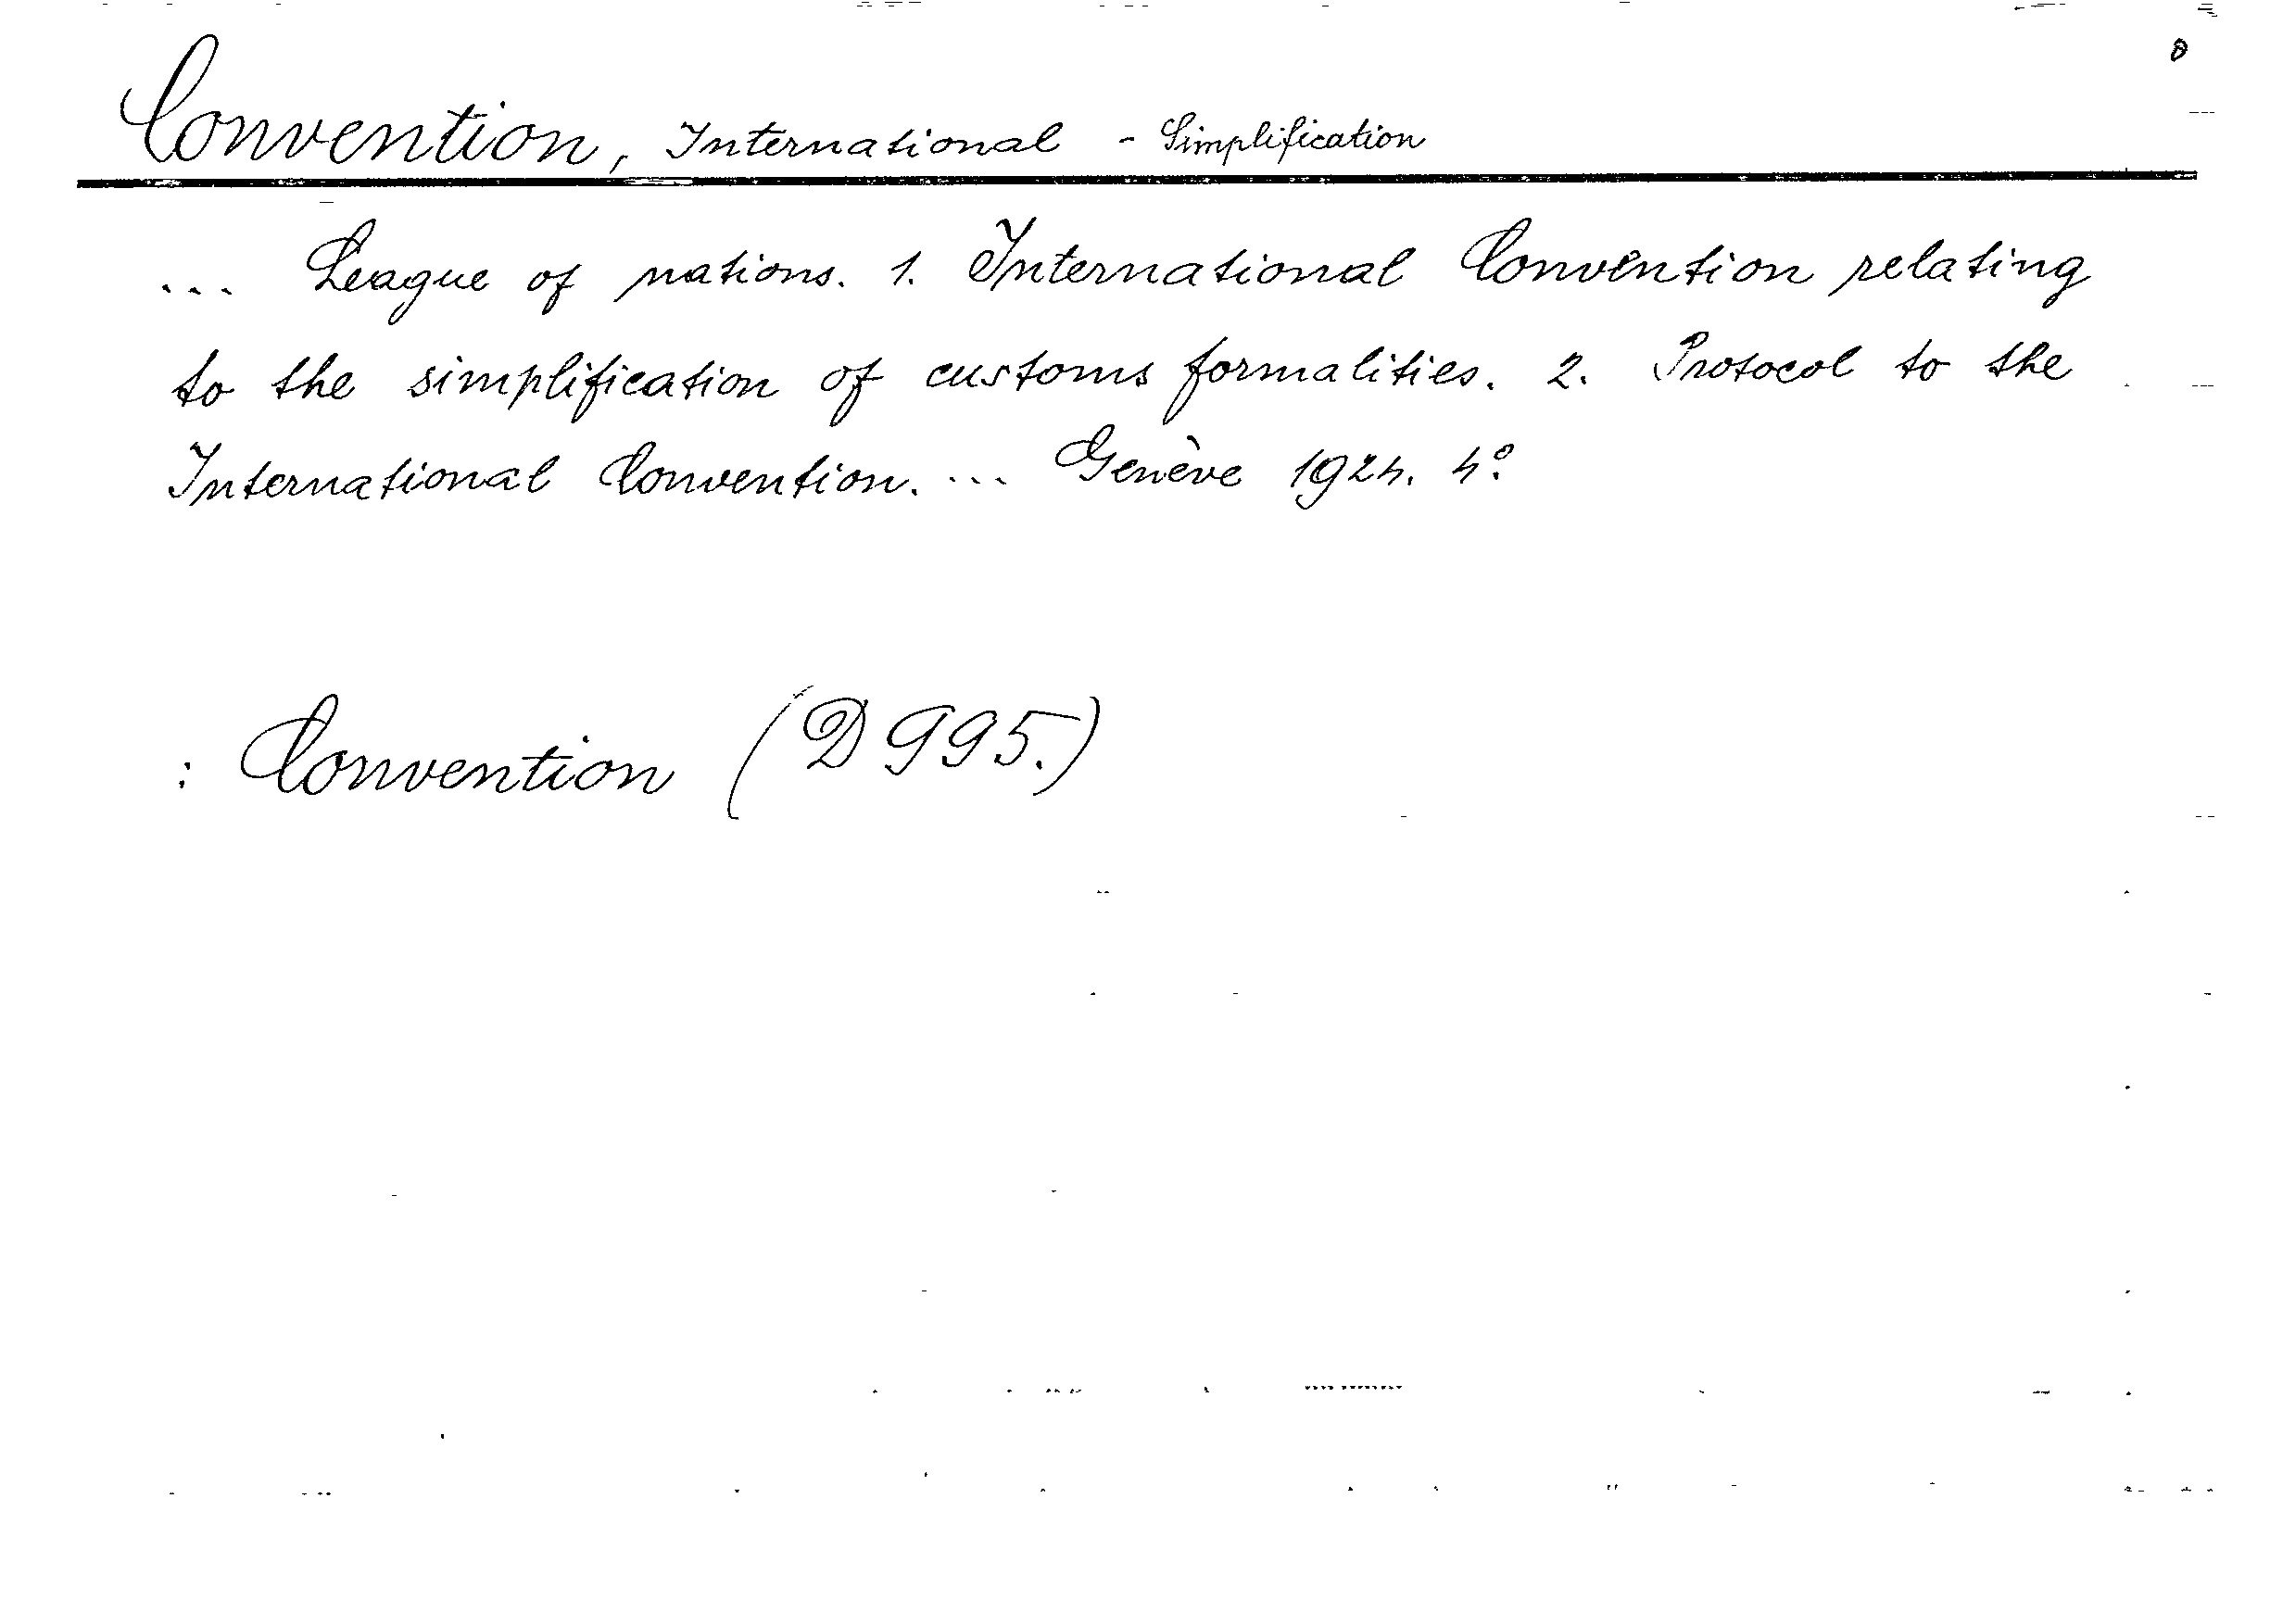 Convention, International - Simplification
... League of nations. 1. International Convention relating
to the simplification of customs formalities. 2. Protocol to the
International Convention. ... Genève 1924. 4º
: Convention (D 995.)